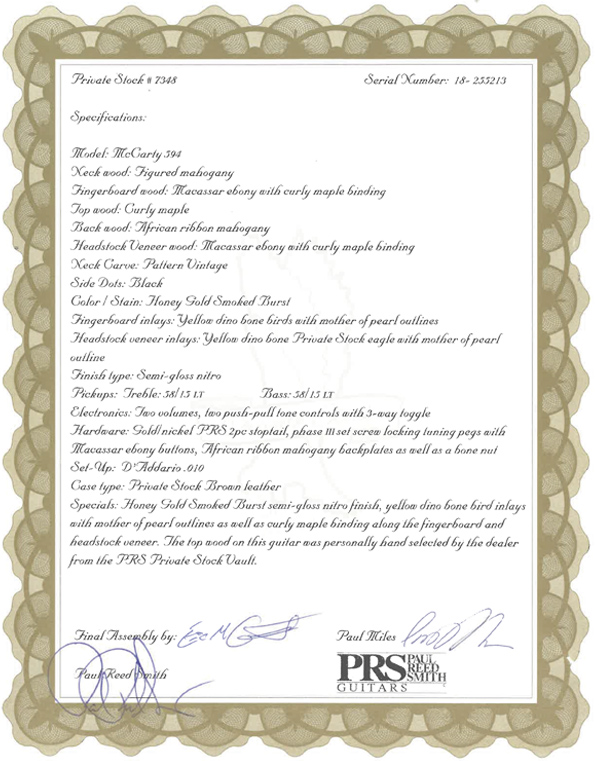 Private Stock # 7348 Serial Number: 18- 255213
Specifications:
Model: McCarty 594
Neck wood: Figured mahogany
Fingerboard wood: Macassar ebony with curly maple binding
Top wood: Curly maple
Back wood: African ribbon mahogany
Headstock Veneer wood: Macassar ebony with curly maple binding
Neck Carve: Pattern Vintage
Side Dots: Black
Color / Stain: Honey Gold Smoked Burst
Fingerboard inlays: Yellow dino bone birds with mother of pearl outlines
Headstock veneer inlays: Yellow dino bone Private Stock eagle with mother of pearl
outline
Finish type: Semi-gloss nitro
Pickups: Treble: 58/15 LT Bass: 58/15 LT
Electronics: Two volumes, two push-pull tone controls with 3-way toggle
Hardware: Gold/nickel PRS 2pc stoptail, phase III set screw locking tuning pegs with
Macassar ebony buttons, African ribbon mahogany backplates as well as a bone nut
Set-Up: D'Addario .010
Case type: Private Stock Brown leather
Specials: Honey Gold Smoked Burst semi-gloss nitro finish, yellow dino bone bird inlays
with mother of pearl outlines as well as curly maple binding along the fingerboard and
headstock veneer. The top wood on this guitar was personally hand selected by the dealer
from the PRS Private Stock Vault.
Final Assembly by: Paul Miles
Paul Reed Smith
PRS PAUL REED SMITH
GUITARS